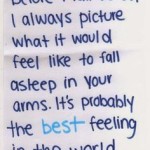 I always picture
what it would
feel like to fall
asleep in your
arms. It's probably
the best feeling
in the world